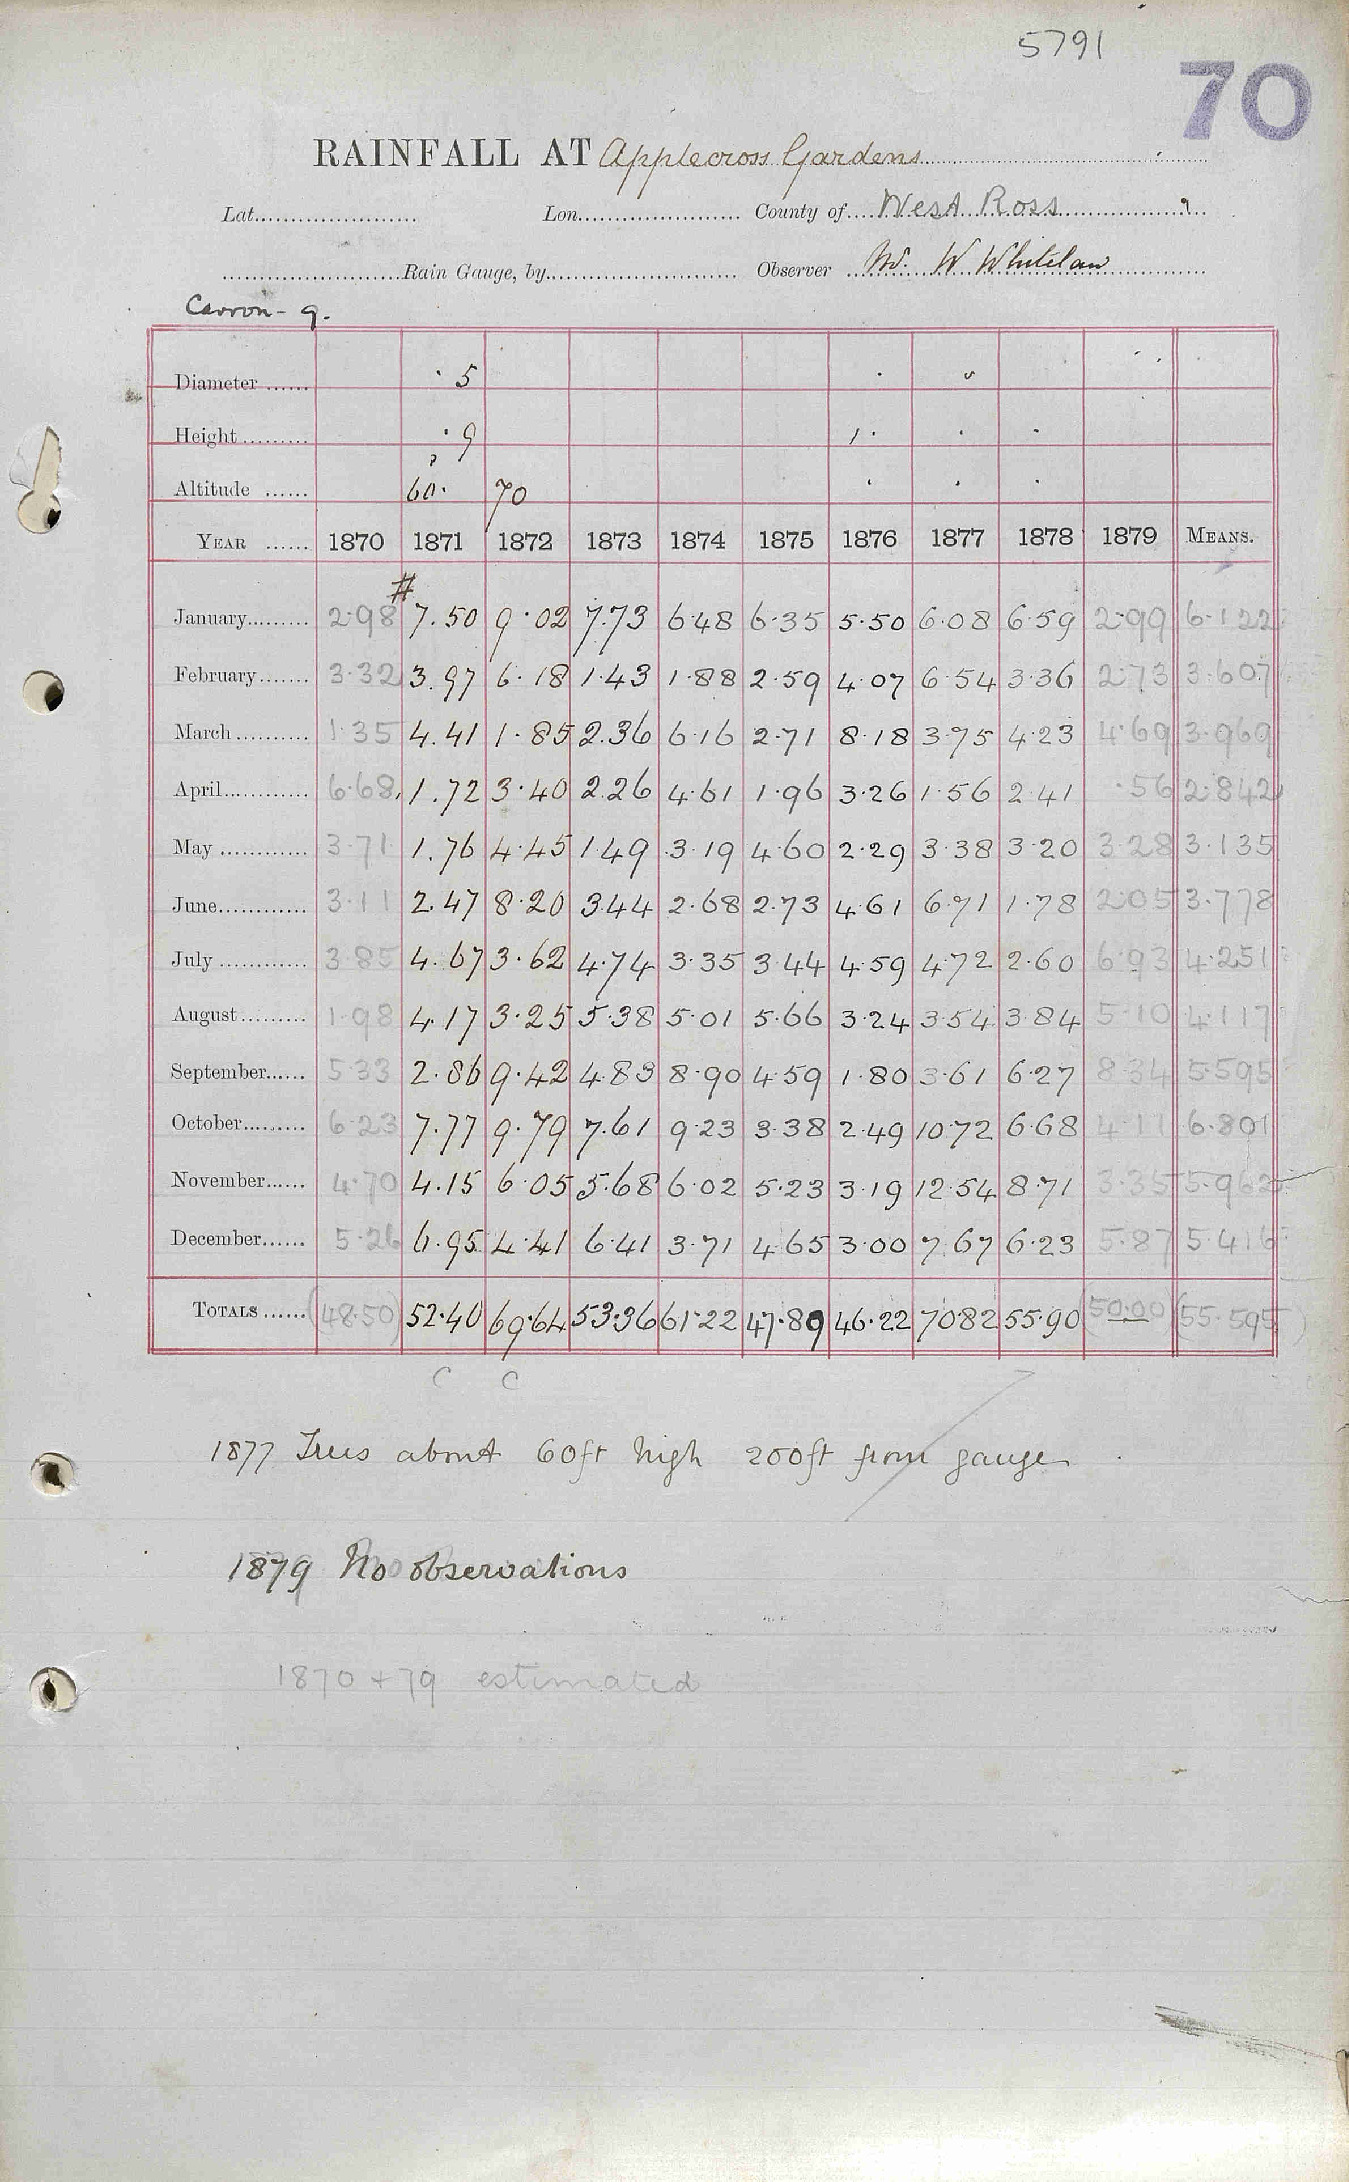 5791
70
RAINFALL AT Applecross Gardens
Lat. Lon. County of West Ross
Rain Gauge, by Observer W. Whitelaw
Carron - 9.
Diameter 5
Height 9
Altitude 60 70
YEAR 1870 1871 1872 1873 1874 1875 1876 1877 1878 1879 MEANS.
#
January 2.98 7.50 9.02 7.73 6.48 6.35 5.50 6.08 6.59 2.99 6.122
February 3.32 3.97 6.18 1.43 1.88 2.59 4.07 6.54 3.36 2.73 3.607
March 1.35 4.41 1.85 2.36 6.16 2.71 8.18 3.75 4.23 4.69 3.969
April 6.68 1.72 3.40 2.26 4.61 1.96 3.26 1.56 2.41 .56 2.842
May 3.71 1.76 4.45 1.49 3.19 4.60 2.29 3.38 3.20 3.28 3.135
June 3.11 2.47 8.20 3.44 2.68 2.73 4.61 6.71 1.78 2.05 3.778
July 3.85 4.67 3.62 4.74 3.35 3.44 4.59 4.72 2.60 6.93 4.251
August 1.98 4.17 3.25 5.38 5.01 5.66 3.24 3.54 3.84 5.10 4.117
September 5.33 2.86 9.42 4.83 8.90 4.59 1.80 3.61 6.27 8.34 5.595
October 6.23 7.77 9.79 7.61 9.23 3.38 2.49 10.72 6.68 4.11 6.801
November 4.70 4.15 6.05 5.68 6.02 5.23 3.19 12.54 8.71 3.35 5.962
December 5.26 6.95 4.41 6.41 3.71 4.65 3.00 7.67 6.23 5.87 5.416
TOTALS (48.50) 52.40 69.64 53.36 61.22 47.89 46.22 70.82 55.90 (50.00) (55.595)
C C
1877 Trees about 60ft high 200ft from gauge
1879 No observations
1870 + 79 estimated